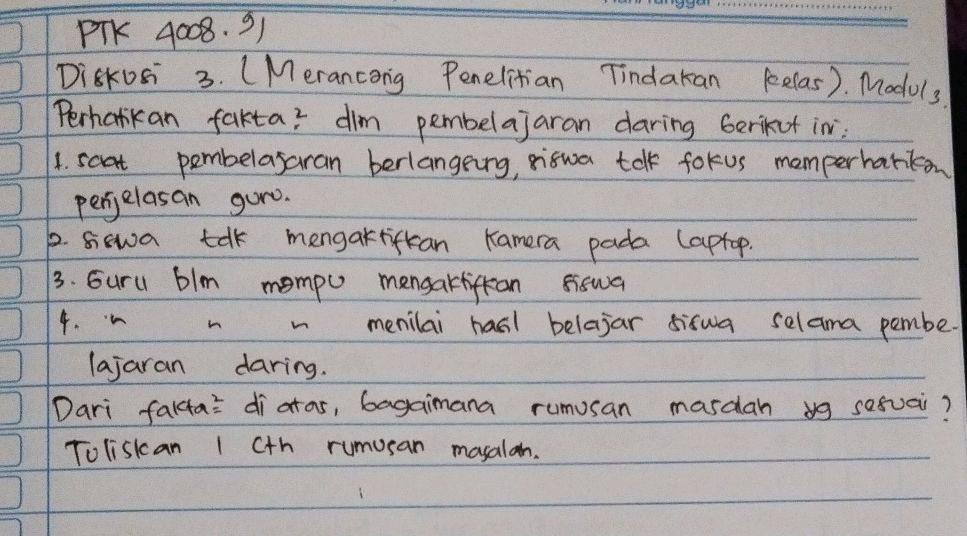 PTK 4008. 91
Diskusi 3. (Merancang Penelitian Tindakan Kelas). Modul 3.
Perhatikan fakta² dlm pembelajaran daring berikut ini:
1. saat pembelajaran berlangsung, siswa tdk fokus memperhatikan
penjelasan guru.
2. siswa tdk mengaktifkan kamera pada laptop.
3. Guru blm mampu mengaktifkan siswa
4. " " " menilai hasil belajar siswa selama pembe-
lajaran daring.
Dari fakta² di atas, bagaimana rumusan masalah yg sesuai?
Tuliskan 1 cth rumusan masalah.